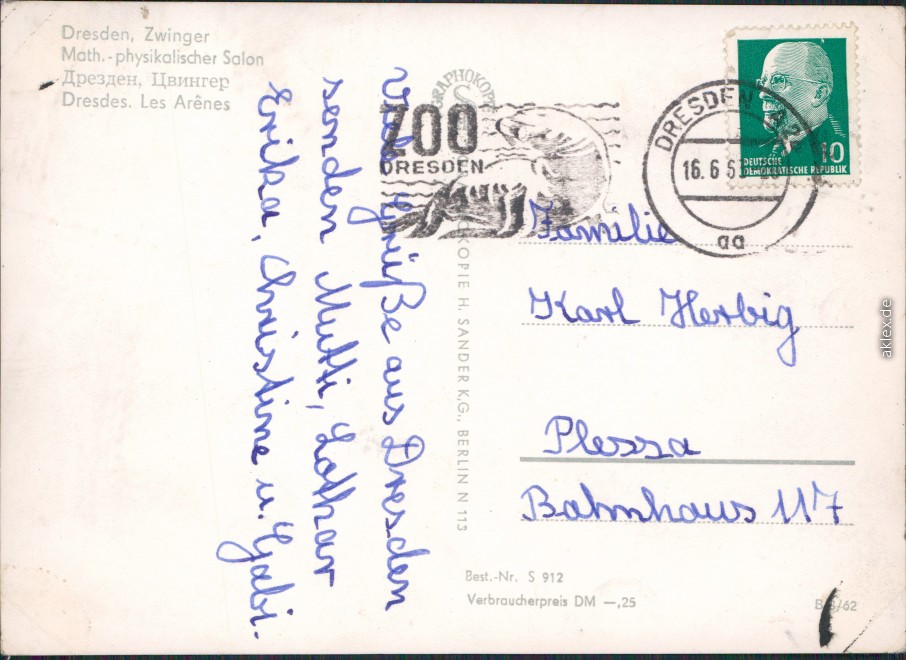 Dresden, Zwinger
Math.-physikalischer Salon
Дрезден, Цвингер
Dresdes. Les Arênes
Viele Grüße aus Dresden
senden Mutti, Lothar
Erika, Christine u. Gabi.
ZOO
DRESDEN
DRESDEN
16.6.6
aa
DEUTSCHE
DEMOKRATISCHE REPUBLIK
10
H. SANDER K.G., BERLIN N 113
Familie
Karl Herbig
Plessa
Bahnhaus 117
Best.-Nr. S 912
Verbraucherpreis DM —,25
/62
aklex.de